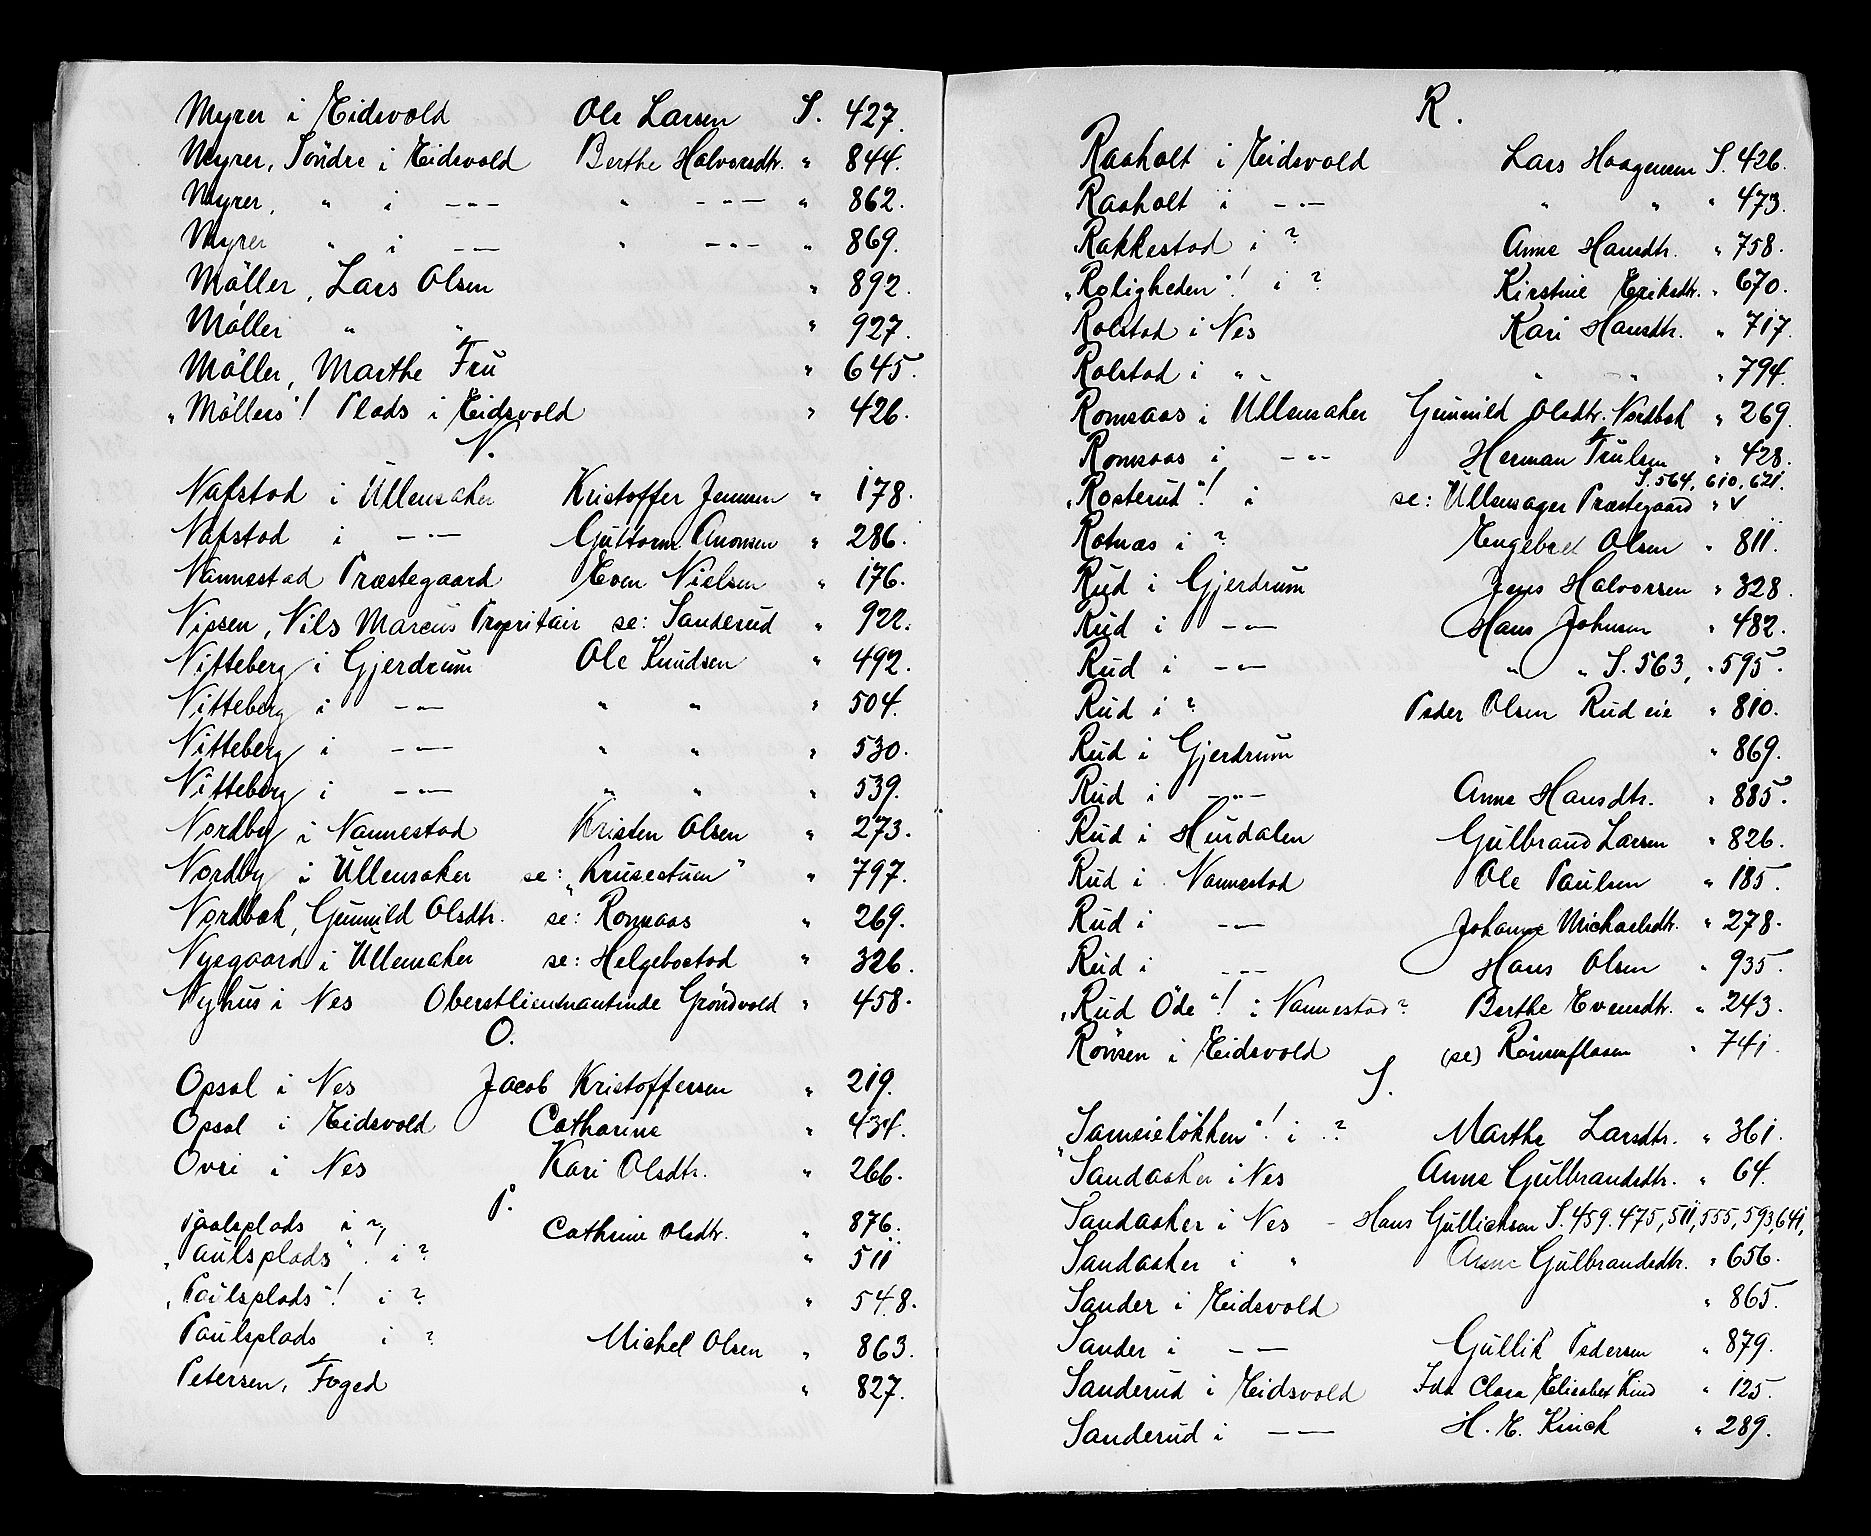 Myrer i Eidsvold Ole Larsen S. 427.
Myrer, Söndre i Eidsvold Berthe Halvorsdtr. " 844.
Myrer, " i -"- " -"- " 862.
Myrer " i -"- " -"- " 869.
Möller, Lars Olsen " 892.
Möller " " " 927.
Möller, Marthe Fru " 645.
"Möllers"! Plads i Eidsvold " 426.
N.
Nafstad i Ullensaker Kristoffer Jensen " 178.
Nafstad i -"- Guttorm Amonsen " 286.
Nannestad Præstegaard Even Nielsen " 176.
Nissen, Nils Marcus Propritair se: Sanderud " 922.
Nitteberg i Gjerdrum Ole Knudsen " 492.
Nitteberg i -"- " " " 504.
Nitteberg i -"- " " " 530.
Nitteberg i -"- " " " 539.
Nordby i Nannestad Kristen Olsen " 273.
Nordby i Ullensaker se: "Krusestuen" " 797.
Nordbæk, Gunnild Olsdtr. se: Romsaas " 269.
Nysgaard i Ullensaker se: Helgebostad " 326.
Nyhus i Nes Oberstlieutnantinde Gröndvold " 458.
O.
Opsal i Nes Jacob Kristoffersen " 219.
Opsal i Eidsvold Catharine " 434.
Ovri i Nes Kari Olsdtr. " 266.
P.
Paalsplads i ? Cathrine Olsdtr. " 876.
"Paulsplads". i ? " 511
"Paulsplads"! i ? " 548.
Paulsplads i ? Michel Olsen " 863.
Petersen, Foged " 827.
R.
Raaholt i Eidsvold Lars Haagensen S. 426.
Raaholt i -"- " " " 473.
Rakkestad i ? Anne Hansdtr. " 758.
"Roligheden"! i ? Kirstine Eriksdtr. " 670.
Rolstad i Nes Kari Hansdtr. " 717.
Rolstad i " " " " 794.
Romsaas i Ullensaker Gunnild Olsdtr. Nordbæk " 269.
Romsaas i -"- Herman Trulsen " 428.
S. 564, 610, 621.
"Rosterud"! i se: Ullensager Præstegaard " v
Rotnæs i ? Engebret Olsen " 811.
Rud i Gjerdrum Jens Halvorsen " 328.
Rud i -"- Hans Johnsen " 482.
Rud i -"- " " S. 563, " 595.
Rud i ? Peder Olsen Rudeie " 810.
Rud i Gjerdrum " 869.
Rud i -"- Anne Hansdtr. " 885.
Rud i Hurdalen Gulbrand Larsen " 826.
Rud i Nannestad Ole Paulsen " 185.
Rud i -"- Johanne Michaelsdtr. " 278.
Rud i -"- Hans Olsen " 935.
"Rud Öde"! i Nannestad? Berthe Evensdtr. " 243.
Rönsen i Eidsvold (se) Rönsenflaaen " 741.
S.
"Sameielökken"! i ? Marthe Larsdtr. " 361.
Sandaaker i Nes Anne Gulbrandsdtr. " 64.
Sandaaker i Nes - Hans Gullichsen S. 459. 475, 511, 555, 593, 641,
Sandaaker i " Anne Gulbrandsdtr. " 656.
Sander i Eidsvold " 865.
Sander i -"- Gullik Pedersen " 879.
Sanderud i Eidsvold Ida Clara Elisabet Lind " 125.
Sanderud i -"- H. E. Kinck " 289.